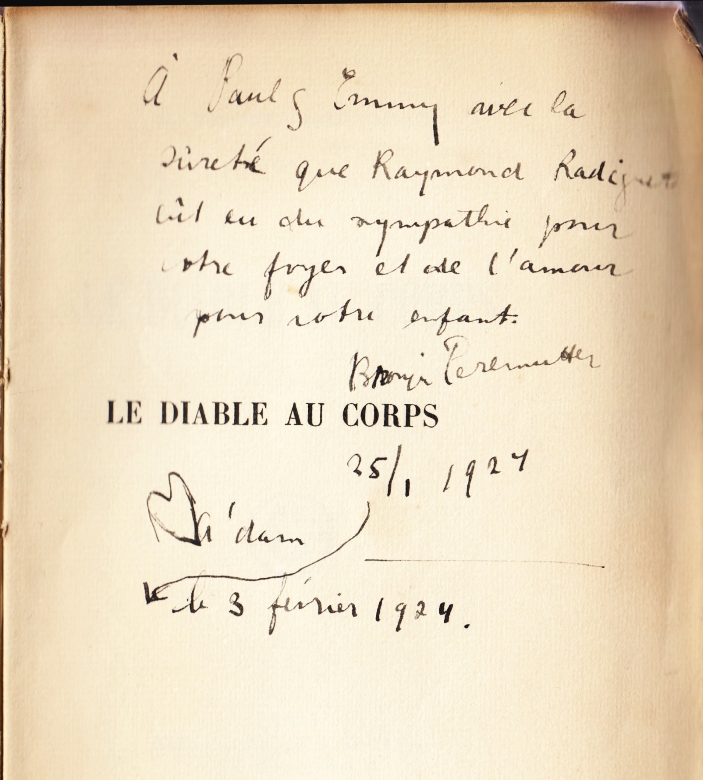 À Paul & Emmy avec la
sûreté que Raymond Radiguet
eût eu du sympathie pour
votre foyer et de l'amour
pour votre enfant.
Bronja Perelmutter
LE DIABLE AU CORPS
25/1 1924
A'dam
le 3 février 1924.